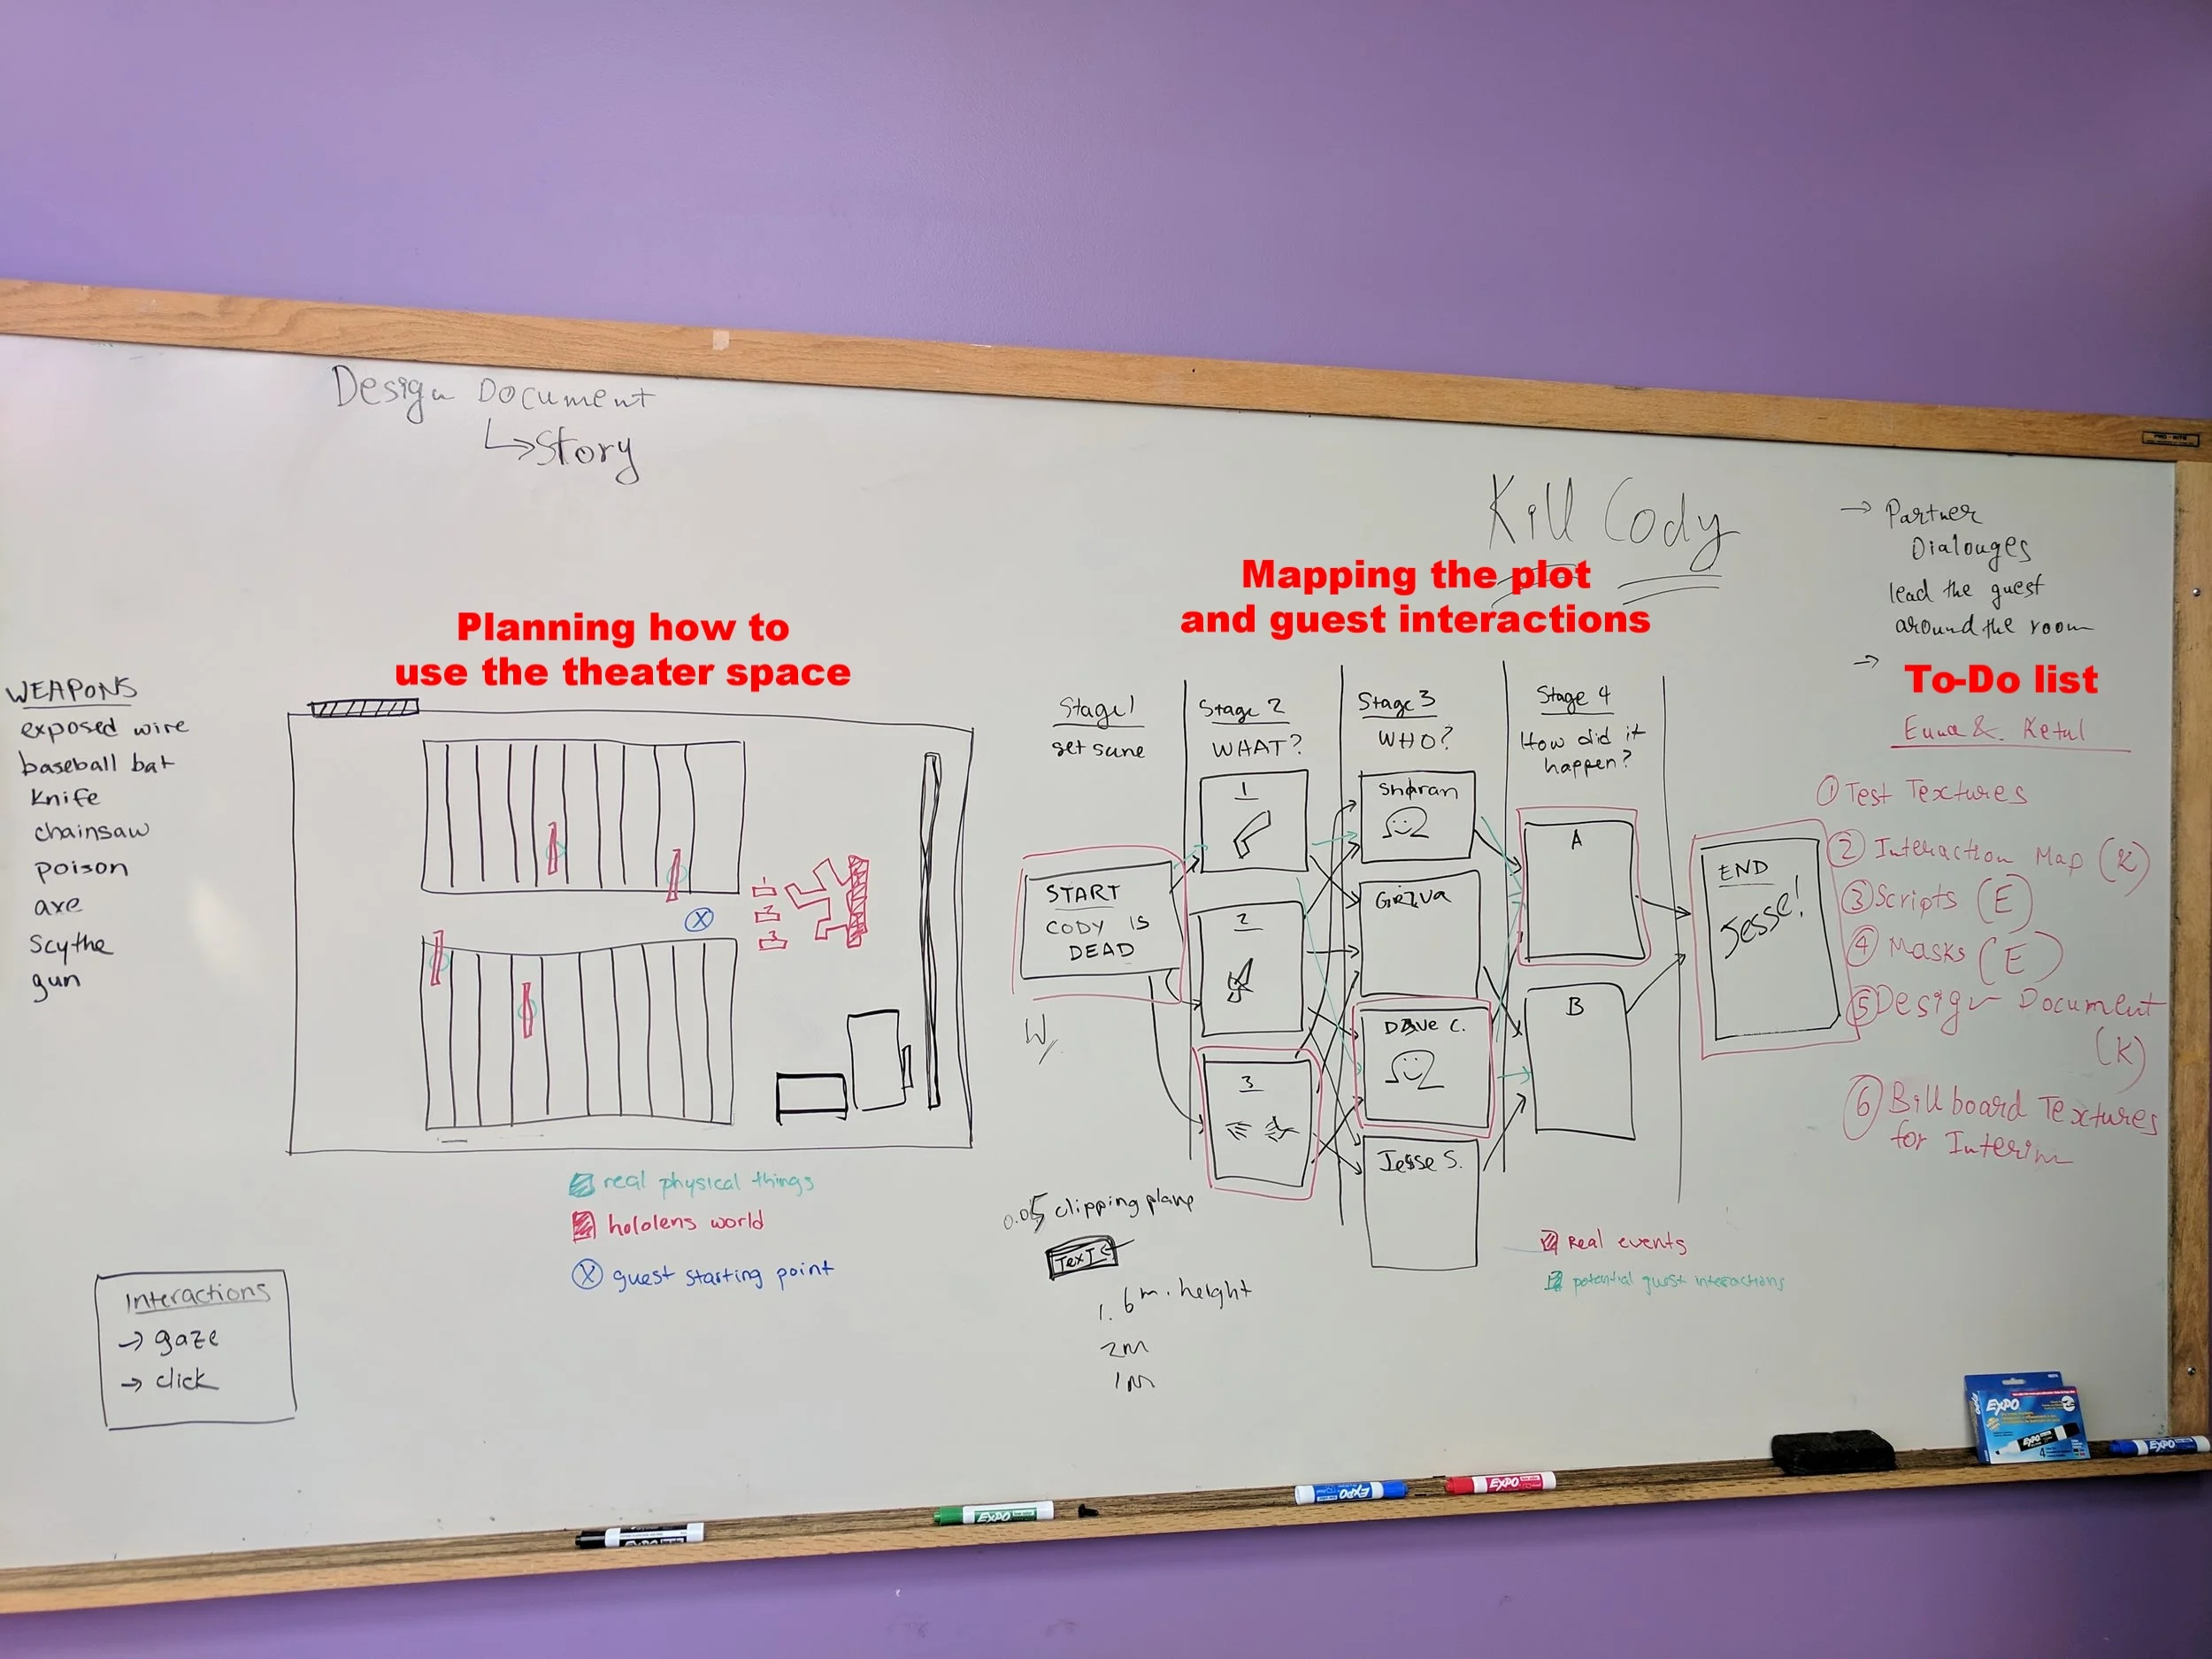 Design Document
↳ Story
Kill Cody
→ Partner
Dialouges
lead the guest
around the room
→
Planning how to
use the theater space
Mapping the plot
and guest interactions
To-Do list
WEAPONS
exposed wire
baseball bat
knife
chainsaw
poison
axe
scythe
gun
1
2
3
X
real physical things
hololens world
X guest starting point
Interactions
→ gaze
→ click
Stage 1
set sune
START
CODY IS
DEAD
W/
Stage 2
WHAT?
1
2
3
Stage 3
WHO?
Sharan
Dave C.
Jesse S.
Stage 4
How did it
happen?
A
B
END
Jesse!
0.05 clipping plane
Text
1.6 m. height
2m
1m
Real events
potential guest interactions
& Ketul
① Test Textures
② Interaction Map (K)
③ Scripts (E)
④ Masks (E)
⑤ Design Document
(K)
⑥ Billboard Textures
for Interim
EXPO
EXPO
EXPO
EXPO
EXPO
EXPO
EXPO
4